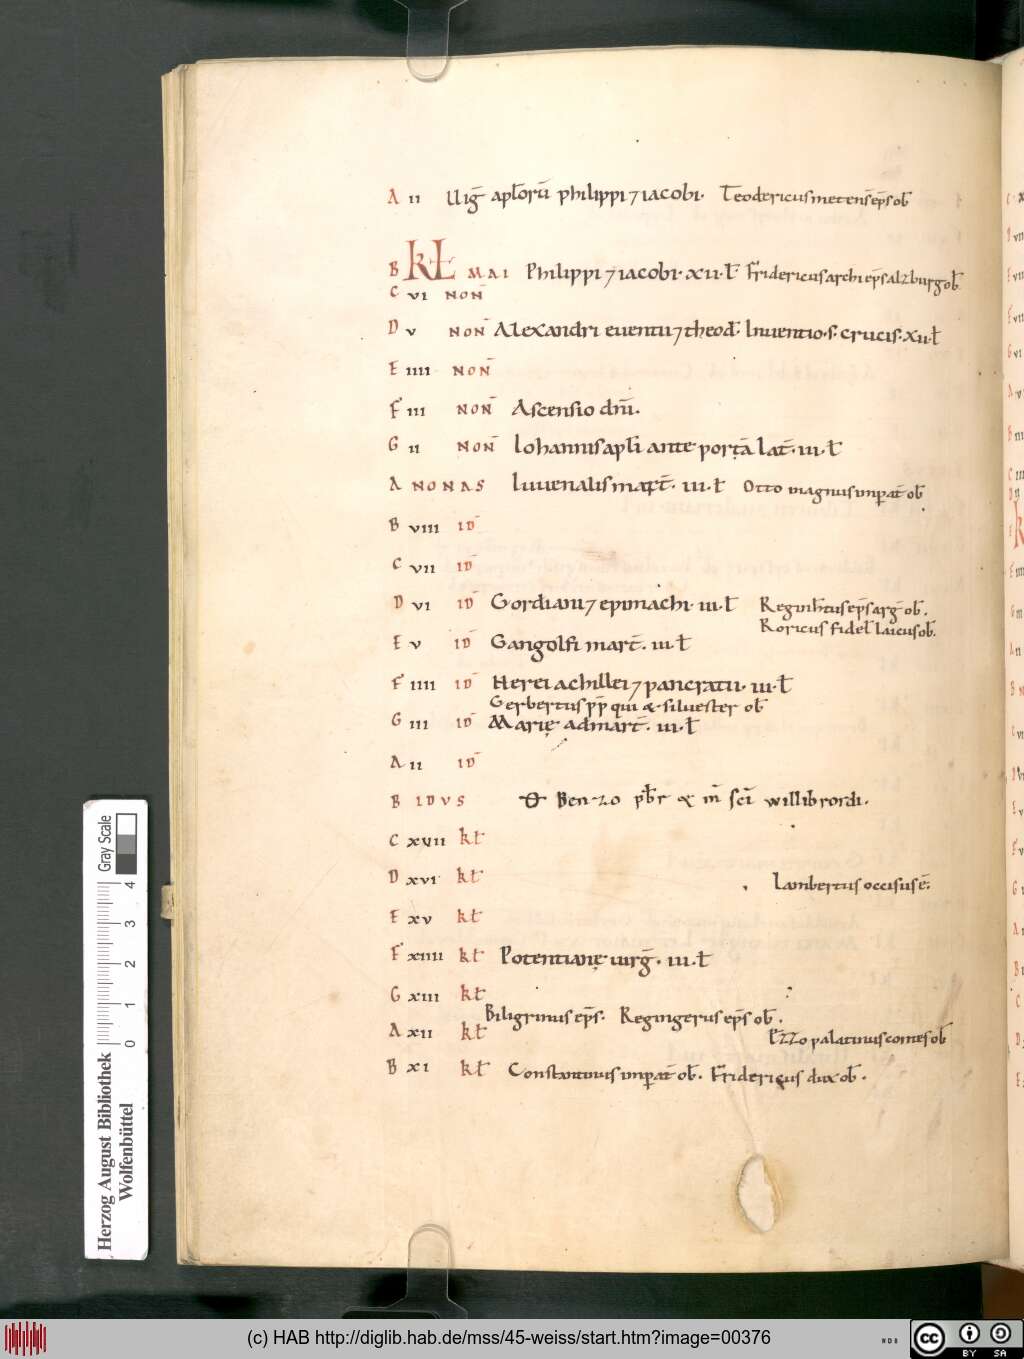 A II Uig̅ apl̅oru̅ philippi ⁊ iacobi. Teodericus metens̅ ep̅s ob̅
B KL MAI Philippi ⁊ iacobi. XII. l̅ Fridericus archiep̅s alzburg ob̅
C VI NON̅
D V NON̅ Alexandri euentii ⁊ theod̅. Inuentio. s. crucis. XII. l̅
E IIII NON̅
F III NON̅ Ascensio dn̅i.
G II NON̅ Iohannis apl̅i ante porta̅ Lat̅. III. l̅
A NONAS Iuuenalis mart̅. III. l̅ Otto magnus imp̅at̅ ob̅
B VIII ID̅
C VII ID̅
D VI ID̅ Gordiani ⁊ epimachi. III. l̅ Reginh̅tus ep̅s arg̅ ob̅.
Roricus fidel̅ laicus ob̅.
E V ID̅ Gangolfi mart̅. III. l̅
F IIII ID̅ Nerei achillei ⁊ pancratii. III. l̅
Gerbertus p̅p̅ qui & siluester ob̅
G III ID̅ Marię ad mart̅. III. l̅
A II ID̅
B IDVS Benzo pb̅r & m̅ sc̅i willibrordi.
C XVII kł
D XVI kł Lambertus occisus e̅.
E XV kł
F XIIII kł Potentianę uirg̅. III. l̅
G XIII kł
Biligrimus ep̅s. Regingerus ep̅s ob̅.
A XII kł Ezzo palatinus comes ob̅
B XI kł Constantinus imp̅at̅ ob̅. Fridericus dux ob̅.
Herzog August Bibliothek
Wolfenbüttel
Gray Scale
0 1 2 3 4
(c) HAB http://diglib.hab.de/mss/45-weiss/start.htm?image=00376
WDB
cc BY SA